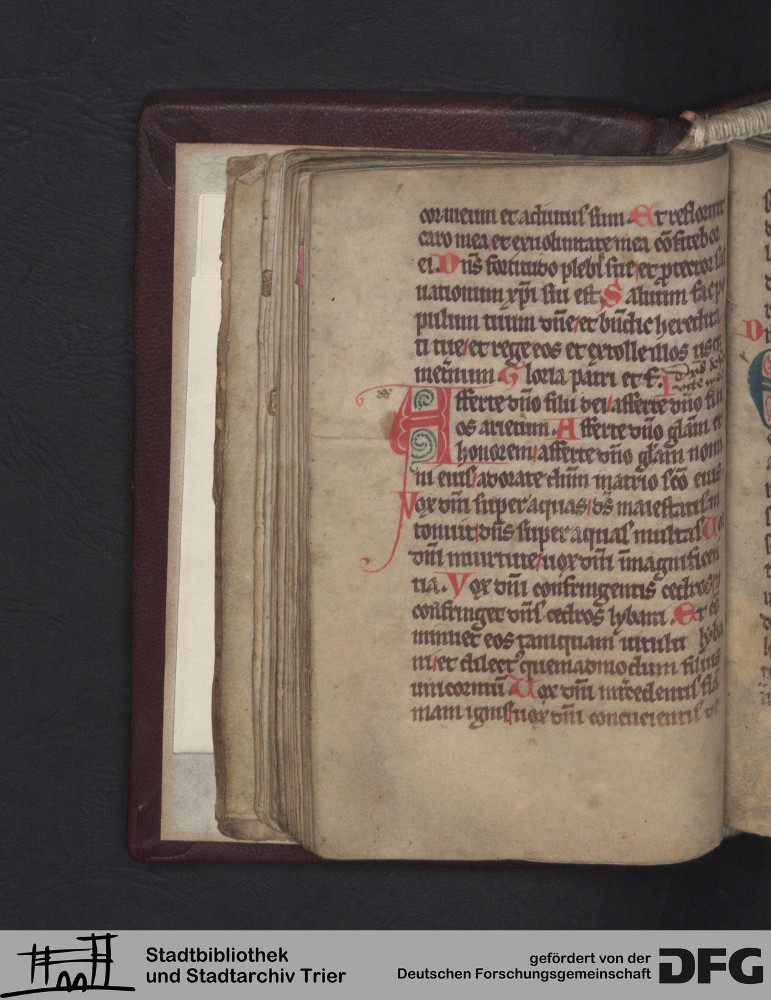 cor meum et adiutus sum. Et refloruit
caro mea et ex uoluntate mea cōfitebor
ei. Dn̄s fortitudo plebis sue et protector sal
uationum xp̄i sui est. Saluum fac po
pulum tuum dn̄e et bn̄dic heredita
ti tue et rege eos et extolle illos usq
in et̄num. Gloria patri et f.
Afferte dn̄o filii dei afferte dn̄o fili
os arietum. Afferte dn̄o gl̄am et
honorem afferte dn̄o gl̄am nomi
ni eius adorate dn̄m in atrio sc̄o eius
Vox dn̄i super aquas ds̄ maiestatis in
tonuit dn̄s super aquas multas Uox
dn̄i in uirtute uox dn̄i in magnificen
tia. Vox dn̄i confringentis cedros
confringet dn̄s cedros lybani. Et co
minuet eos tamquam uitulu lyba
ni et dilect' quemadmodum filius
unicornuū Uox dn̄i int̄cedentis fla
mam ignis uox dn̄i concucientis de
Stadtbibliothek
und Stadtarchiv Trier
gefördert von der
Deutschen Forschungsgemeinschaft
DFG